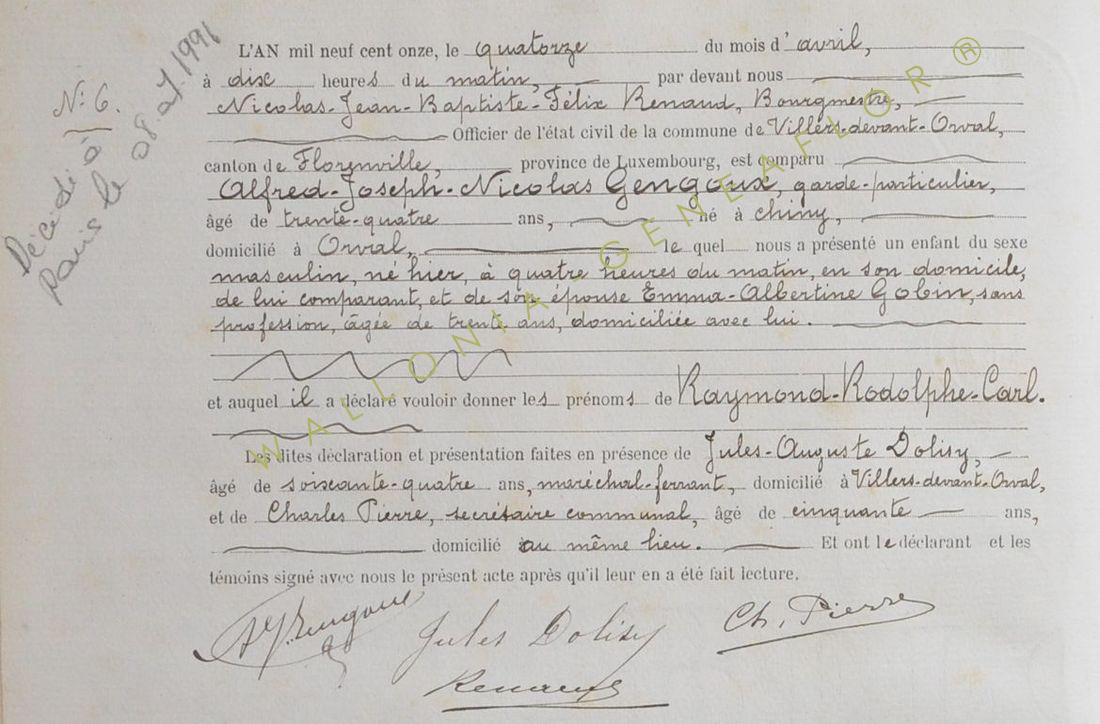 N° 6.
Décédé à
Paris le
08.07.1991
L'AN mil neuf cent onze, le quatorze du mois d'avril,
à dix heures du matin, par devant nous
Nicolas-Jean-Baptiste-Félix Renaud, Bourgmestre,
Officier de l'état civil de la commune de Villers-devant-Orval,
canton de Florenville, province de Luxembourg, est comparu
Alfred-Joseph-Nicolas Gengoux, garde-particulier,
âgé de trente-quatre ans, né à Chiny,
domicilié à Orval, le quel nous a présenté un enfant du sexe
masculin, né hier, à quatre heures du matin, en son domicile,
de lui comparant, et de son épouse Emma-Albertine Gobin, sans
profession, âgée de trente ans, domiciliée avec lui.
et auquel il a déclaré vouloir donner les prénoms de Raymond-Rodolphe-Carl.
Les dites déclaration et présentation faites en présence de Jules-Auguste Dolisy,
âgé de soixante-quatre ans, maréchal-ferrant, domicilié à Villers-devant-Orval,
et de Charles Pierre, secrétaire communal, âgé de cinquante ans,
domicilié au même lieu. Et ont le déclarant et les
témoins signé avec nous le présent acte après qu'il leur en a été fait lecture.
Jules Dolisy
Ch. Pierre
Renaud
WALLONIA-GENEAFLOR ®